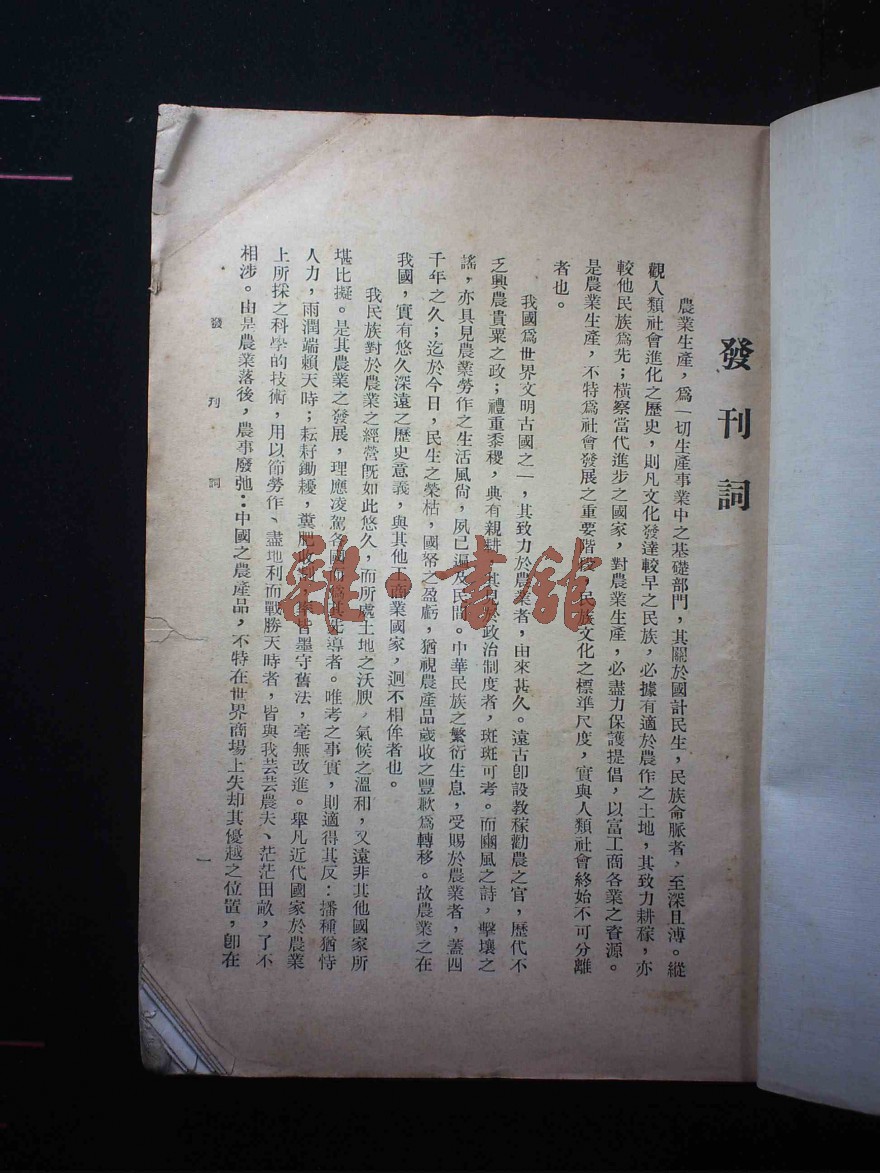 發刊詞
農業生產，為一切生產事業中之基礎部門，其關於國計民生，民族命脈者，至深且溥。縱
觀人類社會進化之歷史，則凡文化發達較早之民族，必據有適於農作之土地，其致力耕稼，亦
較他民族為先；橫察當代進步之國家，對農業生產，必盡力保護提倡，以富工商各業之資源。
是農業生產，不特為社會發展之重要階段，民族文化之標準尺度，實與人類社會終始不可分離
者也。
我國為世界文明古國之一，其致力於農業者，由來甚久。遠古卽設教稼勸農之官，歷代不
乏興農貴粟之政；禮重黍稷，典有親耕，其見於政治制度者，斑斑可考。而豳風之詩，擊壤之
謠，亦具見農業勞作之生活風尙，夙已遍及民間。中華民族之繁衍生息，受賜於農業者，蓋四
千年之久；迄於今日，民生之榮枯，國幣之盈虧，猶視農產品歲收之豐歉為轉移。故農業之在
我國，實有悠久深遠之歷史意義，與其他工商業國家，迥不相侔者也。
我民族對於農業之經營旣如此悠久，而所處土地之沃腴，氣候之溫和，又遠非其他國家所
堪比擬。是其農業之發展，理應凌駕各國而為其先導者。唯考之事實，則適得其反：播種猶恃
人力，雨潤端賴天時；耘耔鋤耰，糞肥收刈，率皆墨守舊法，毫無改進。舉凡近代國家於農業
上所採之科學的技術，用以節勞作、盡地利而戰勝天時者，皆與我芸芸農夫、茫茫田畝，了不
相涉。由是農業落後，農事廢弛：中國之農產品，不特在世界商場上失却其優越之位置，卽在
發刊詞
一
雜·書館